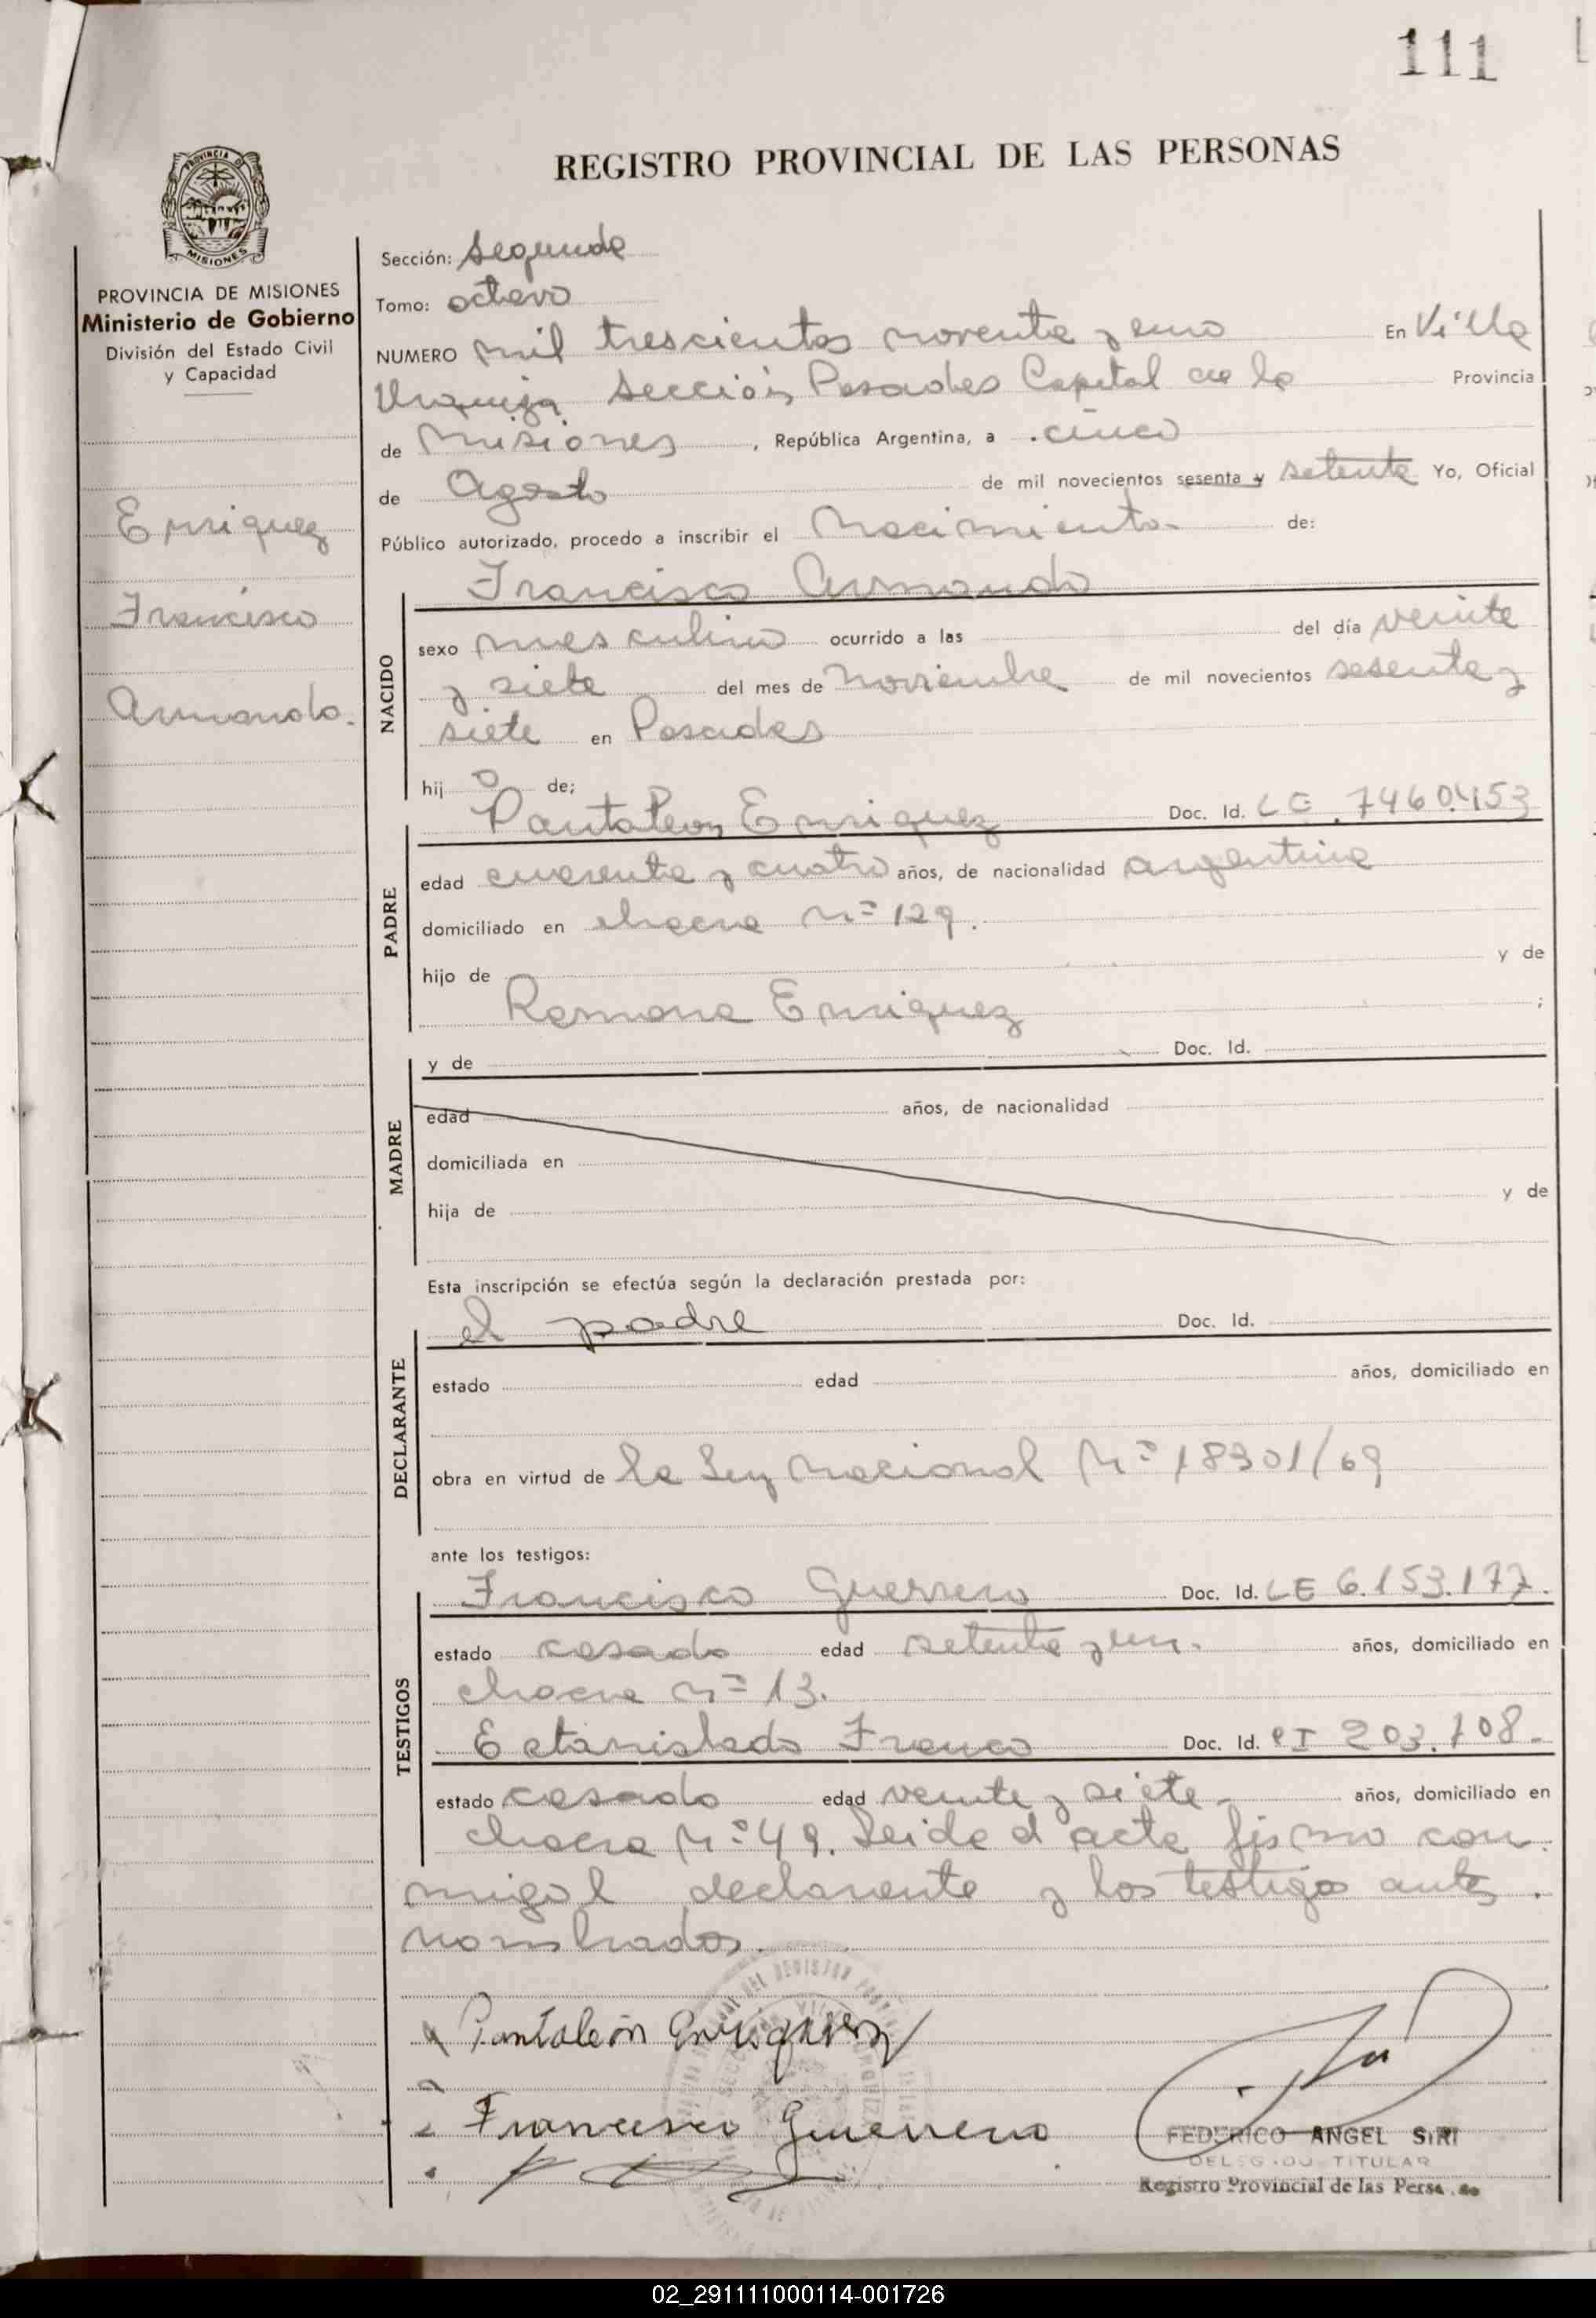 111
REGISTRO PROVINCIAL DE LAS PERSONAS
PROVINCIA DE MISIONES
Ministerio de Gobierno
División del Estado Civil
y Capacidad
Enriquez
Francisco
Armando.
Sección: Segunda
Tomo: octavo
NUMERO mil trescientos noventa y uno En Villa
Urquiza Sección Posadas Capital de la Provincia
de Misiones, República Argentina, a cinco
de Agosto de mil novecientos sesenta y setenta Yo, Oficial
Público autorizado, procedo a inscribir el Nacimiento de:
Francisco Armando
NACIDO
sexo masculino ocurrido a las del día veinte
y siete del mes de noviembre de mil novecientos sesenta y
siete en Posadas
hijo de;
Pantaleon Enriquez Doc. Id. LE 7460.453
PADRE
edad cuarenta y cuatro años, de nacionalidad argentina
domiciliado en chacra nº 129.
hijo de y de
Ramona Enriquez ;
y de Doc. Id.
MADRE
edad años, de nacionalidad
domiciliada en
hija de y de
Esta inscripción se efectúa según la declaración prestada por:
el padre Doc. Id.
DECLARANTE
estado edad años, domiciliado en
obra en virtud de la Ley Nacional Nº 18301/69
ante los testigos:
Francisco Guerrero Doc. Id. LE 6.153.177.
TESTIGOS
estado casado edad setenta y un. años, domiciliado en
chacra nº 13.
Estanislado Franco Doc. Id. CI 203.708.-
estado casado edad veinte y siete.- años, domiciliado en
chacra Nº 49. Leida el acta firma con
migo l declarante y los testigos antes
nombrados.
Pantaleón Enriquez
Francisco Guerrero
FEDERICO ANGEL SIRI
TITULAR
Registro Provincial de las Perso
02_291111000114-001726